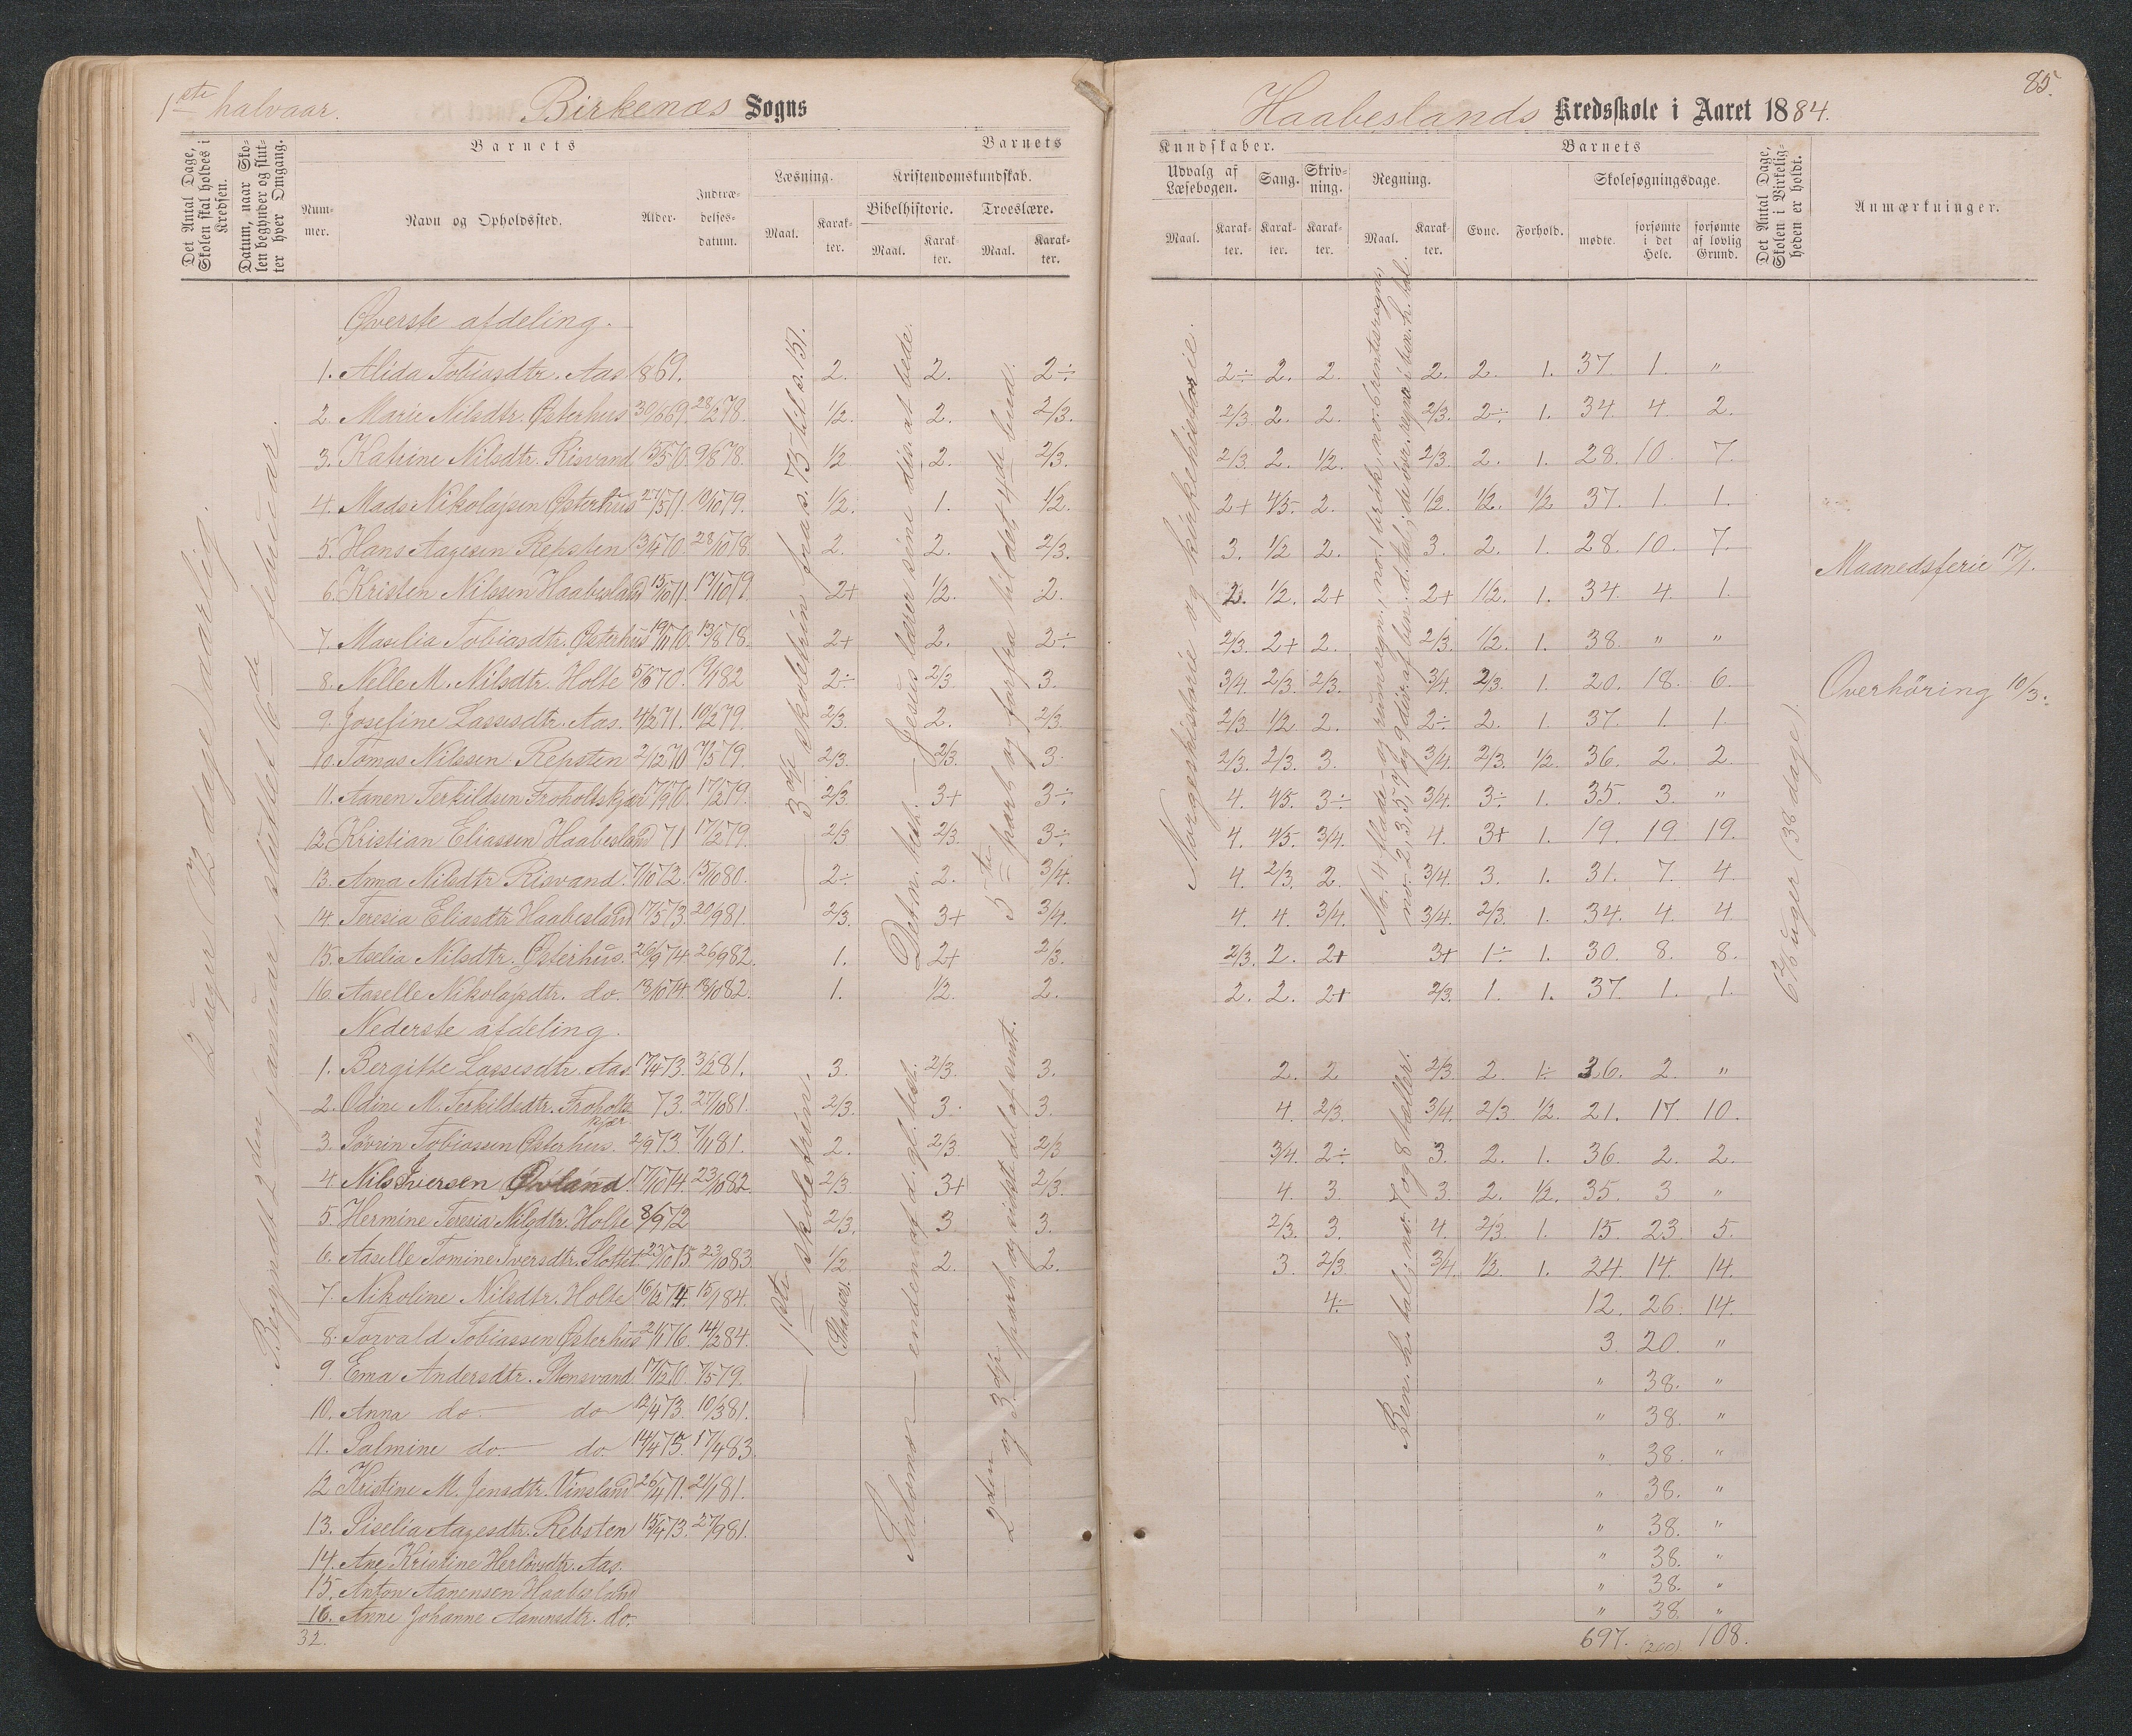 1ste halvaar.
Birkenæs Sogns
Haabeslands Kredsskole i Aaret 1884.
85.
Det Antal Dage, Skolen skal holdes i Kredsen.
Datum, naar Skolen begynder og slutter hver Omgang.
Barnets
Nummer.
Navn og Opholdssted.
Alder.
Indtrædelsesdatum.
Barnets
Læsning.
Maal.
Karakter.
Kristendomskundskab.
Bibelhistorie.
Maal.
Karakter.
Troeslære.
Maal.
Karakter.
Kundskaber.
Udvalg af Læsebogen.
Maal.
Karakter.
Sang.
Karakter.
Skrivning.
Karakter.
Regning.
Maal.
Karakter.
Barnets
Evne.
Forhold.
Skolesøgningsdage.
mødte.
forsømte i det Hele.
forsømte af lovlig Grund.
Det Antal Dage, Skolen i Virkeligheden er holdt.
Anmærkninger.
12 uger (72 dage) aarlig.
Begyndt 2den januar, sluttet 16de februar.
3die skoletrin fra s. 75 til s. 151.
Norgeshistorie og kirkehistorie.
6 2/6 uger (38 dage).
Øverste afdeling.
1. Alida Tobiasdtr. Aas 1869. 2. 2. 2÷ 2÷ 2. 2. 2. 2. 1. 37. 1. "
2. Marie Nilsdtr. Østerhus 30/6 69. 28/2 78. 1/2. 2. 2/3. 2/3. 2. 2. 2/3. 2÷ 1. 34. 4. 2.
3. Katrine Nilsdtr. Risvand 13/5 70. 9/8 78. 1/2 2. 2/3. 2/3. 2. 1/2. 2/3. 2. 1. 28. 10. 7.
4. Mads Nikolajsen Østerhus 27/5 71. 10/10 79. 1/2. 1. 1/2. 2+ 4/5. 2. 1/2. 1/2. 1/2 37. 1. 1.
5. Hans Aagesen Rebsten 13/4 70. 28/10 78. 2. 2. 2/3. 3. 1/2 2. 3. 2. 1. 28. 10. 7.
Maanedsferie 17/1.
6. Kristen Nilssen Haabesland 13/10 71. 17/10 79 2+ 1/2. 2. 2. 1/2. 2+ 2+ 1/2. 1. 34. 4. 1.
7. Maselia Tobiasdtr. Østerhus 19/11 70. 13/8 78. 2+ 2. 2÷ 2/3. 2+ 2. 2/3. 1/2. 1. 38. " "
8. Nelle M. Nilsdtr. Holte 5/6 70. 19/1 82 2÷ 2/3. 3. 3/4. 2/3. 2/3. 3/4. 2/3. 1. 20. 18. 6.
Overhöring 10/3.
9. Josefine Lassesdtr. Aas. 4/2 71. 10/2 79. 2/3. 2. 2/3. 2/3. 1/2 2. 2÷ 2. 1. 37. 1. 1.
10. Tomas Nilssen Rebsten 2/12 70 7/5 79. 2/3. 2/3. 3. 2/3. 2/3. 3. 3/4. 2/3. 1/2. 36. 2. 2.
11. Aanen Terkildsen Froholtskjær 17/9 70. 17/2 79. 2/3. 3+ 3÷ 4. 4/5. 3÷ 3/4. 3÷ 1. 35. 3. "
12. Kristian Eliassen Haabesland 71 17/2 79. 2/3 2/3. 3÷ 4. 4/5. 3/4. 4. 3+ 1. 19. 19. 19.
13. Anna Nilsdtr. Risvand. 7/10 72. 15/10 80. 2÷ 2. 3/4. 4. 2/3. 2. 3/4. 3. 1. 31. 7. 4.
14. Teresia Eliasdtr. Haabesland 17/5 73. 20/9 81. 2/3. 3+ 3/4. 4. 4. 3/4. 3/4. 2/3. 1. 34. 4. 4
15. Aselia Nilsdtr. Østerhus. 26/9 74. 26/9 82. 1. 2+ 2/3. 2/3. 2. 2+ 3+ 1÷ 1. 30. 8. 8.
16. Aaselle Nikolajsdtr. do. 13/10 74 13/10 82. 1. 1/2. 2. 2. 2. 2+ 2/3. 1. 1. 37. 1. 1.
Nederste afdeling.
1ste skoletrin. (Skaar).
1. Bergitte Lassesdtr. Aas 17/4 73. 3/2 81. 3. 2/3. 3. 2. 2 2/3 2. 1÷ 36. 2. "
2. Odine M. Terkildsdtr. Froholtskjær 73. 27/10 81. 2/3. 3. 3. 4. 2/3. 3/4. 2/3. 1/2. 21. 17. 10.
3. Sövrin Tobiassen Østerhus. 2/9 73. 7/11 81. 2. 2/3. 2/3 3/4. 2÷ 3. 2. 1. 36. 2. 2.
4. Nils Iversen Øvland. 17/10 74. 23/10 82. 2/3. 3+ 2/3. 4. 3. 3. 2. 1/2. 35. 3 "
5. Hermine Teresia Nilsdtr. Holte 8/9 72 2/3. 3 3. 2/3. 3. 4. 2/3. 1. 15. 23. 5.
6. Aaselle Tomine Iversdtr. Slottet 23/10 75. 23/10 83. 1/2. 2. 2. 3. 2/3 3/4. 1/2. 1. 24. 14. 14.
7. Nikoline Nilsdtr. Holte 16/12 74. 15/1 84. 4÷ 12. 26. 14.
8. Torvald Tobiassen Østerhus 21/1 76. 14/2 84. 3. 20. "
9. Ema Andersdtr. Stensvand. 17/12 70. 7/5 79. " 38. "
10. Anna do. do 12/4 73. 10/3 81. " 38. "
11. Salmine do. do. 14/4 75. 17/4 83. " 38. "
12. Kristine M. Jensdtr. Vinsland 26/4 71. 21/1 81. " 38. "
13. Siselia Aagesdtr. Rebsten 15/4 73. 27/9 81. " 38. "
14. Ane Kristine Herlövsdtr. Aas. " 38. "
15. Anton Aanensen Haabesland " 38. "
16. Anne Johanne Aanensdtr. do. " 38. "
32. 697. (200). 108.